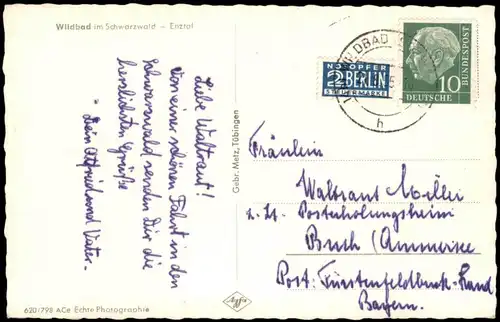 Wildbad im Schwarzwald – Enztal
Liebe Waltraut!
Von einer schönen Fahrt in den
Schwarzwald senden Dir die
herzlichsten Grüße
Dein und Vater.
620/798 ACe Echte Photographie
Gebr. Metz, Tübingen
Agfa
NOTOPFER
2 BERLIN
STEUERMARKE
WILDBAD
h
DEUTSCHE
BUNDESPOST
10
Fräulein
Waltraut Miller
z. Zt. Posterholungsheim
Buch (Ammersee
Post: Fürstenfeldbruck-Land
Bayern.